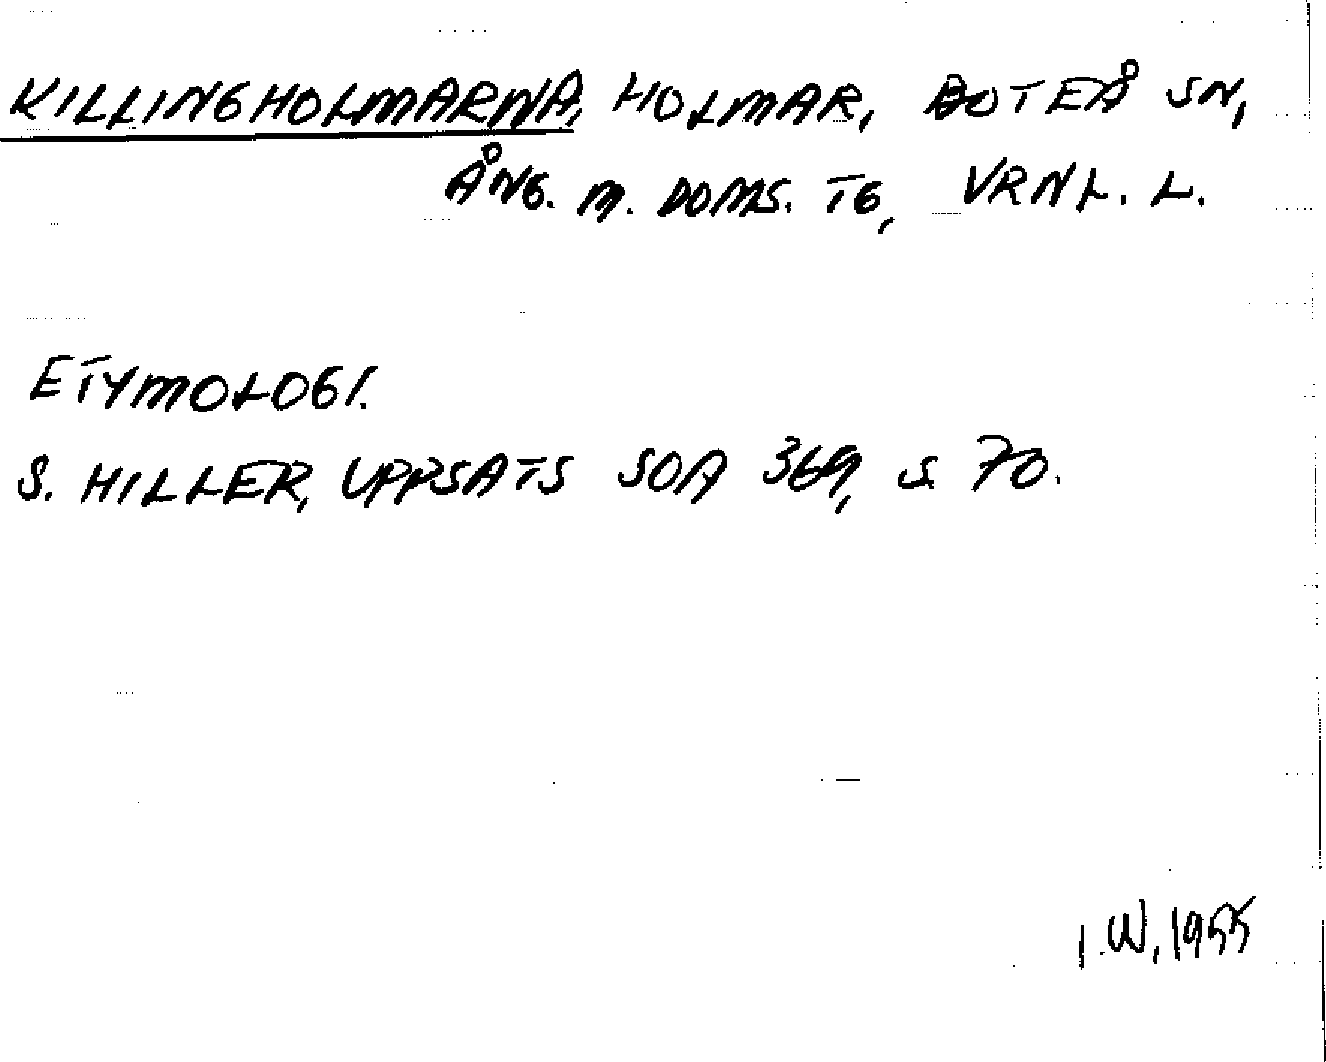 KILLINGHOLMARNA, HOLMAR, BOTEÅ SN,
ÅNG. M. DOMS. TG, VRNL. L.
ETYMOLOGI.
S. HILLER, UPPSATS SOA 369, S 70.
I.W, 1955